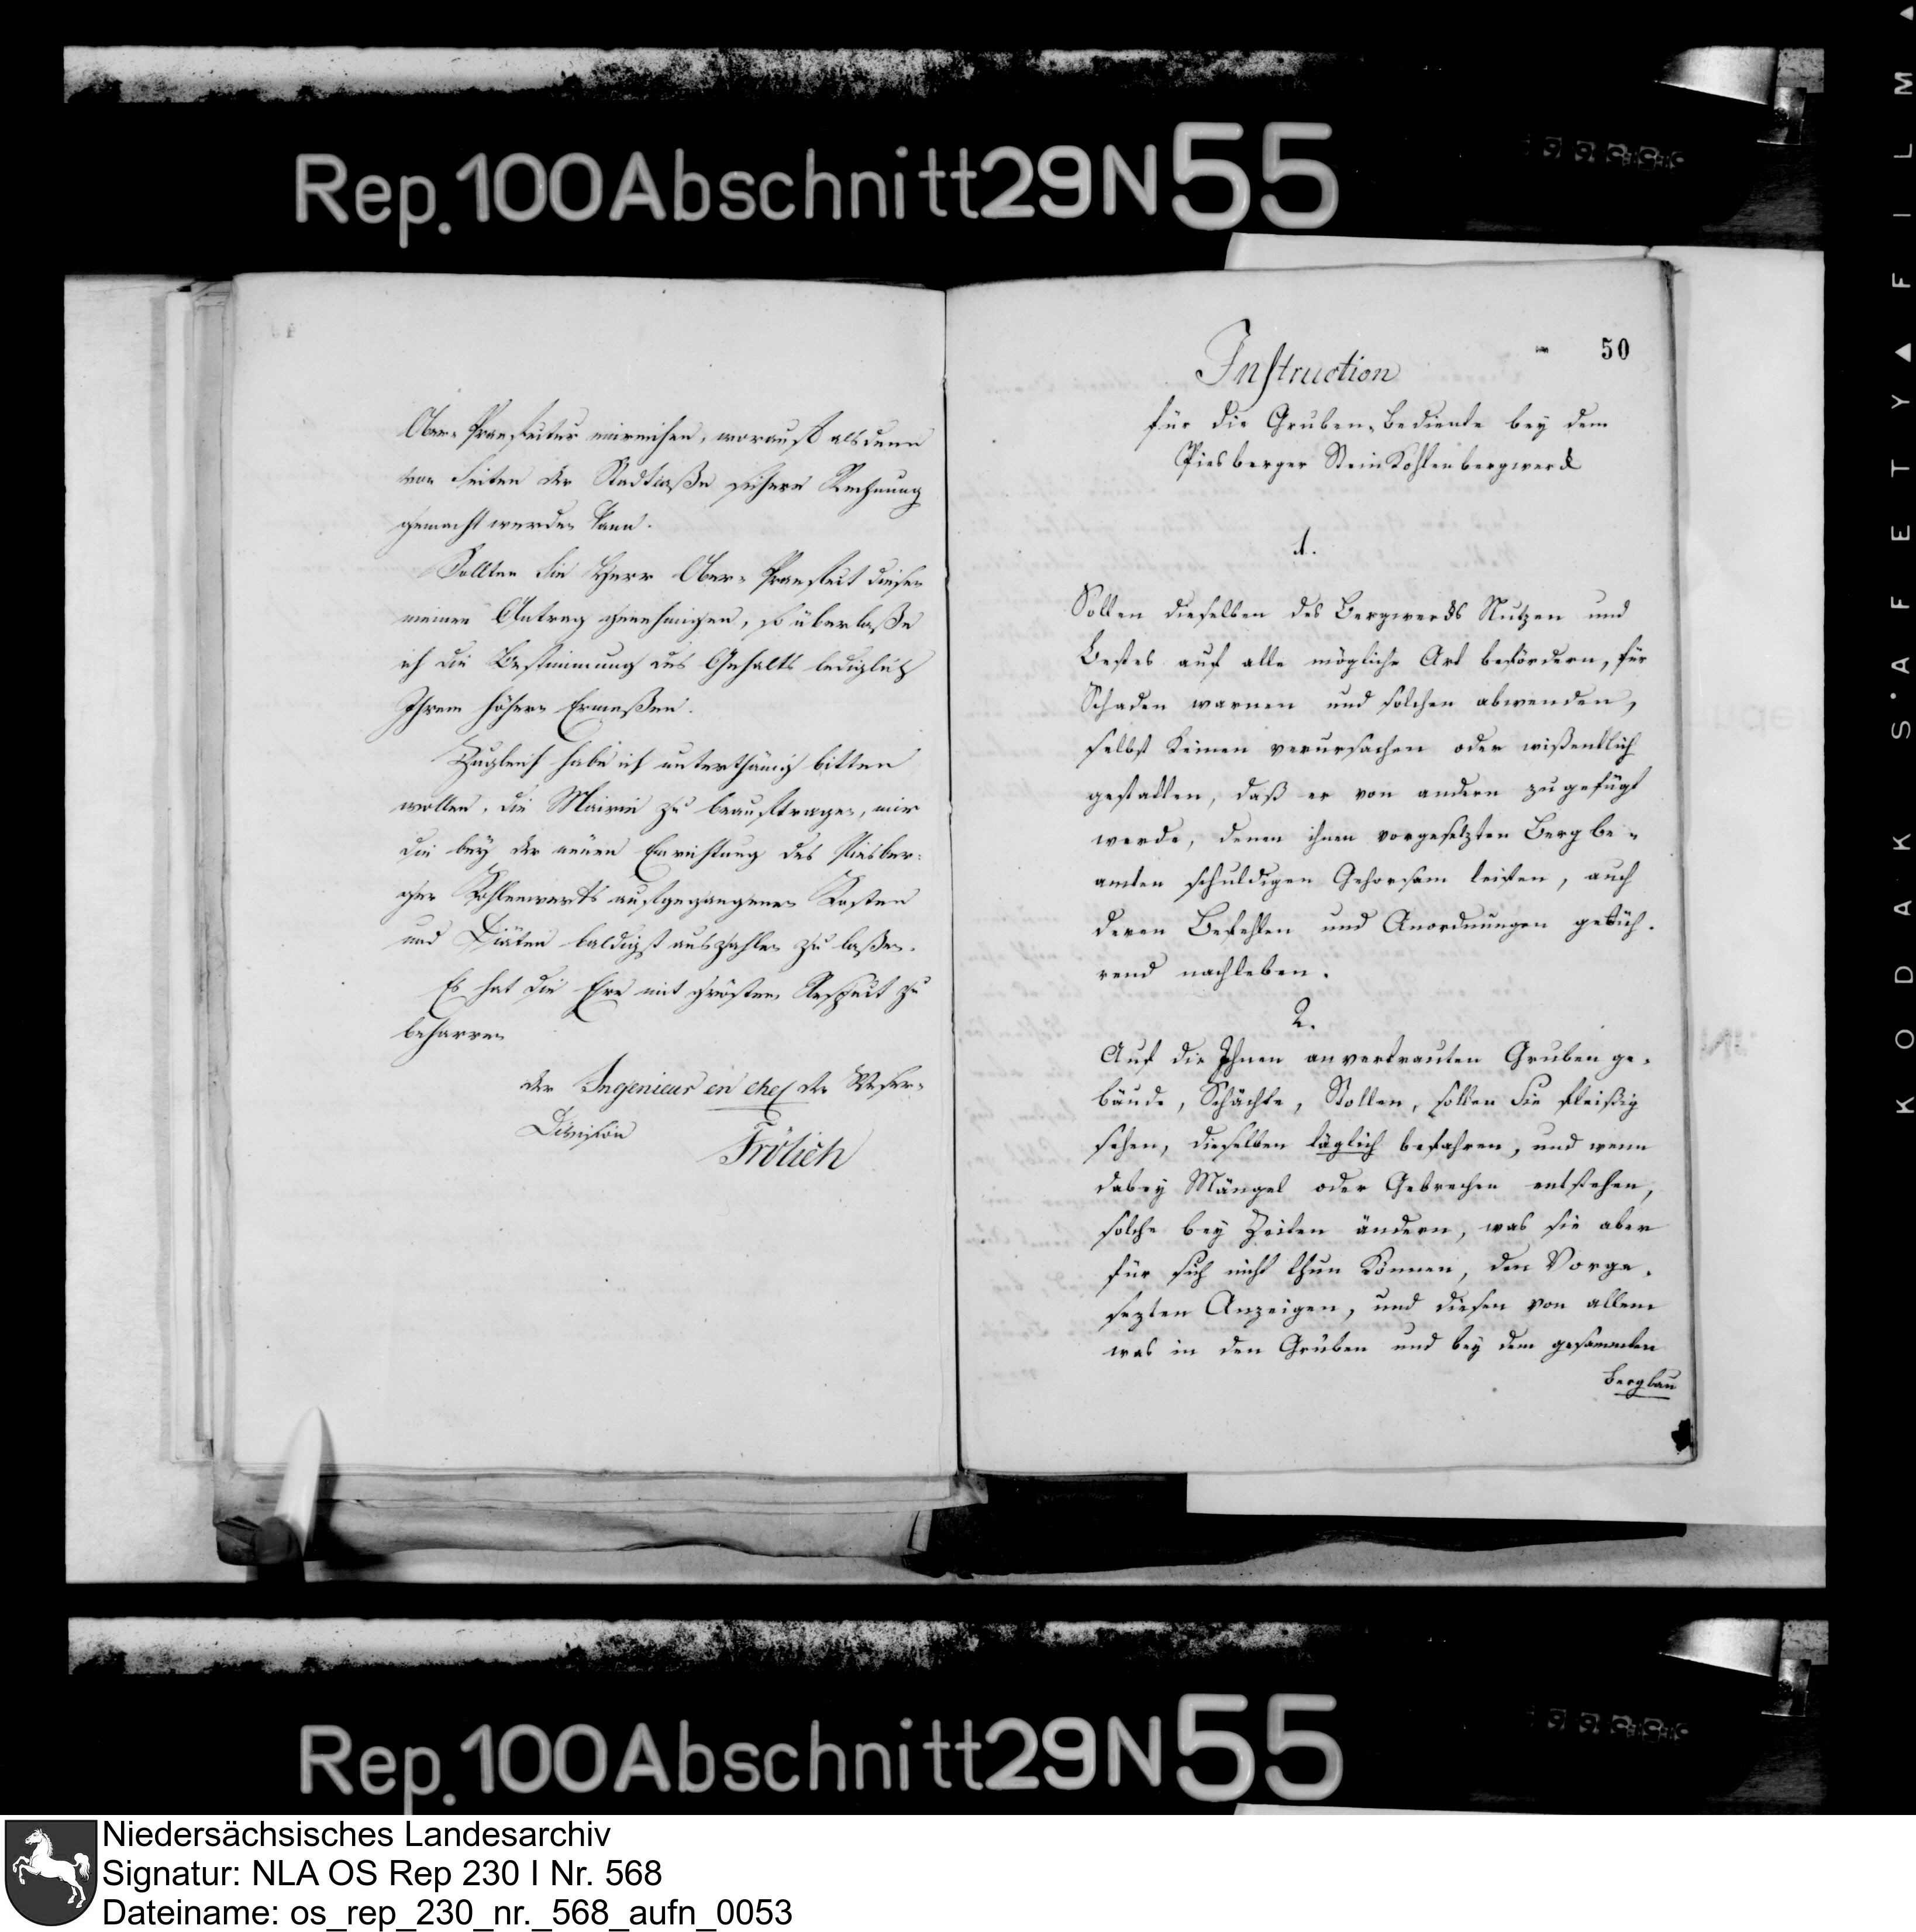 Rep. 100 Abschnitt 29 N 55
Ober-Praefectur einreichen, worauf alsdenn
von Seiten der Stadtcaße sichere Rechnung
gemacht werden kann.
Sollten Sie Herr Ober-Praefect diesen
meinen Antrag genehmigen, so überlaße
ich die Bestimmung des Gehalts lediglich
Ihrem höhern Ermeßen.
Zugleich habe ich unterthänig bitten
wollen, die Mairie zu beauftragen, mir
die bey der neuen Einrichtung des Piesber-
ger Kohlenwerks aufgegangenen Kosten
und Diäten baldigst auszahlen zu laßen.
Es hat die Ehre mit grösten Respect zu
beharren
der Ingenieur en chef der Weser-
Division
Frölich
50
Instruction
für die Gruben-Bediente bey dem
Piesberger SteinKohlenbergwerck
1.
Sollen dieselben des Bergwercks Nutzen und
Bestes auf alle mögliche Art befördern, für
Schaden warnen und solchen abwenden,
selbst keinen verursachen oder wißentlich
gestatten, daß er von andern zugefügt
werde, denen ihnen vorgesetzten Bergbe-
amten schuldigen Gehorsam leisten, auch
deren Befehlen und Anordnungen gebüh-
rend nachleben.
2.
Auf die Ihnen anvertrauten Gruben ge-
bäude, Schächte, Stollen, sollen Sie fleißig
sehen, dieselben täglich befahren, und wenn
dabey Mängel oder Gebrechen entstehen,
solche bey Zeiten ändern, was sie aber
für sich nicht thun können, den Vorge-
sezten Anzeigen, und diesen von allem
was in den Gruben und bey dem gesammten
Bergbau
KODAK·SAFETY▲FILM▲
Rep. 100 Abschnitt 29 N 55
Niedersächsisches Landesarchiv
Signatur: NLA OS Rep 230 I Nr. 568
Dateiname: os_rep_230_nr._568_aufn_0053